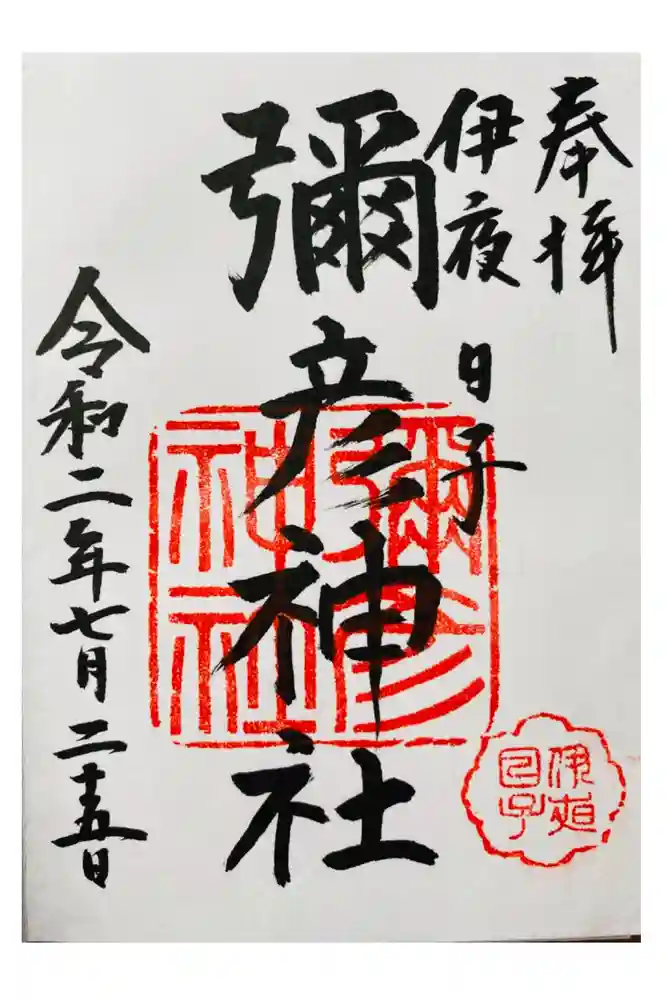 奉拝
伊夜
日子
彌彦神社
令和二年七月二十五日
彌彦
神社
伊夜
日子